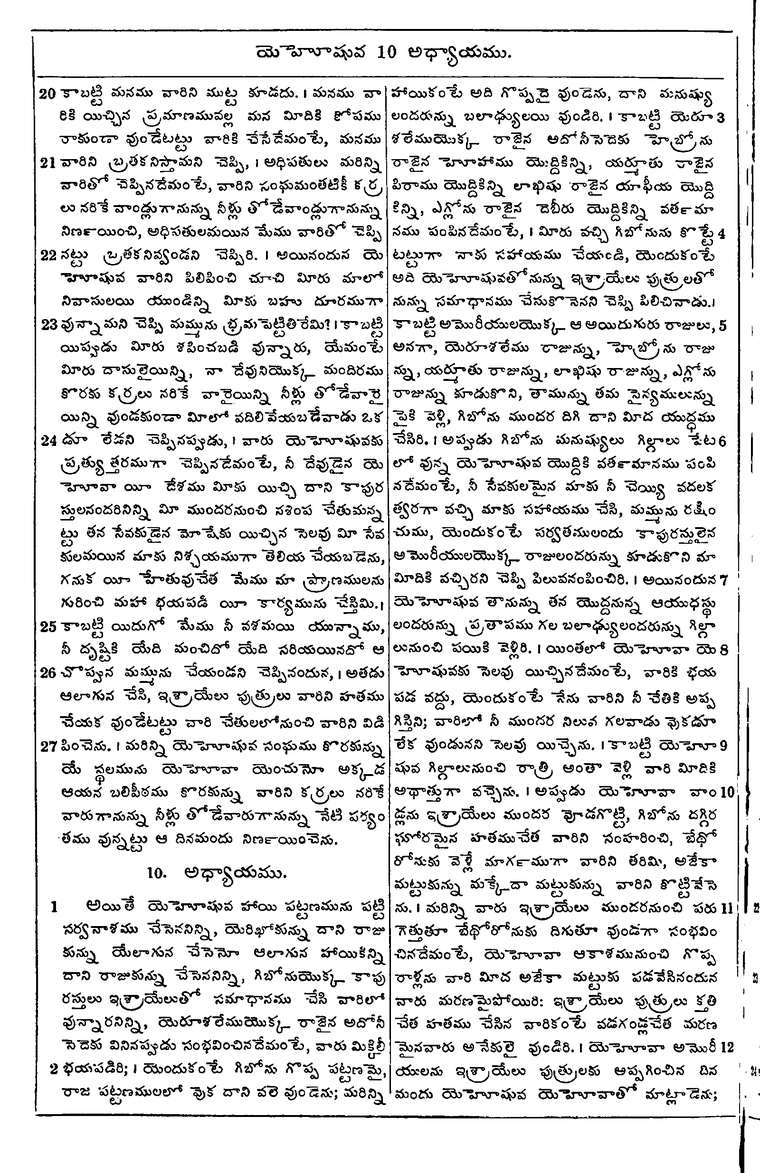 యెహోషువ 10 అధ్యాయము.
20 కాబట్టి మనము వారిని ముట్ట కూడదు. । మనము వా
రికి యిచ్చిన ప్రమాణమువల్ల మన మీదికి కోపము
రాకుండా వుండేటట్టు వారికి చేసేదేమంటే, మనము
21 వారిని బ్రతకనిస్తామని చెప్పి, । అధిపతులు మరిన్ని
వారితో చెప్పినదేమంటే, వారిని సంఘమంతటికీ కర్ర
లు నరికే వాండ్లుగానున్ను నీళ్లు తోడేవాండ్లుగానున్ను
నిర్ణయించి, అధిపతులమయిన మేము వారితో చెప్పి
22 నట్టు బ్రతకనివ్వండని చెప్పిరి. । అయినందున యె
హోషువ వారిని పిలిపించి చూచి మీరు మాలో
నివాసులయి యుండిన్ని మీకు బహు దూరముగా
23 వున్నామని చెప్పి మమ్మును భ్రమపెట్టితిరేమి? । కాబట్టి
యిప్పుడు మీరు శపించబడి వున్నారు, యేమంటే
మీరు దాసులైయిన్ని, నా దేవునియొక్క మందిరము
కొరకు కర్రలు నరికే వారైయిన్ని నీళ్లు తోడేవారై
యిన్ని వుండకుండా మీలో వదిలివేయబడేవాడు ఒక
24 డూ లేడని చెప్పినప్పుడు, । వారు యెహోషువకు
ప్రత్యుత్తరముగా చెప్పినదేమంటే, నీ దేవుడైన యె
హోవా యీ దేశము మీకు యిచ్చి దాని కాపుర
స్తులనందరినిన్ని మీ ముందరనుంచి నశింప చేతుమన్న
ట్టు తన సేవకుడైన మోషేకు యిచ్చిన సెలవు మీ సేవ
కులమయిన మాకు నిశ్చయముగా తెలియ చేయబడెను,
గనుక యీ హేతువుచేత మేము మా ప్రాణములను
గురించి మహా భయపడి యీ కార్యమును చేస్తిమి. ।
25 కాబట్టి యిదుగో మేము నీ వశమయి యున్నాము,
నీ దృష్టికి యేది మంచిదో యేది సరియయినదో ఆ
26 చొప్పున మమ్మును చేయండని చెప్పినందున, । అతడు
ఆలాగున చేసి, ఇశ్రాయేలు పుత్రులు వారిని హతము
చేయక వుండేటట్టు వారి చేతులలోనుంచి వారిని విడి
27 పించెను. । మరిన్ని యెహోషువ సంఘము కొరకున్ను
యే స్థలమును యెహోవా యెంచునో అక్కడ
ఆయన బలిపీఠము కొరకున్ను వారిని కర్రలు నరికే
వారుగానున్ను నీళ్లు తోడేవారుగానున్ను నేటి పర్యం
తము వున్నట్టు ఆ దినమందు నిర్ణయించెను.
10. అధ్యాయము.
1 అయితే యెహోషువ హాయి పట్టణమును పట్టి
సర్వనాశము చేసెననిన్ని, యెరిఖోకున్ను దాని రాజు
కున్ను యేలాగున చేసెనో ఆలాగున హాయికిన్ని
దాని రాజుకున్ను చేసెననిన్ని, గిబోనుయొక్క కాపు
రస్తులు ఇశ్రాయేలుతో సమాధానము చేసి వారిలో
వున్నారనిన్ని, యెరూశలేముయొక్క రాజైన అదోనీ
సెదెకు వినినప్పుడు సంభవించినదేమంటే, వారు మిక్కిలీ
2 భయపడిరి; । యెందుకంటే గిబోను గొప్ప పట్టణమై,
రాజ పట్టణములలో వొక దాని వలె వుండెను; మరిన్ని
హాయికంటే అది గొప్పదై వుండెను, దాని మనుష్యు
లందరున్ను బలాఢ్యులయి వుండిరి. । కాబట్టి యెరూ 3
శలేముయొక్క రాజైన అదోనీసెదెకు హెబ్రోను
రాజైన హోహాము యొద్దికిన్ని, యర్మూతు రాజైన
పిరాము యొద్దికిన్ని లాఖిషు రాజైన యాఫీయ యొద్ది
కిన్ని, ఎగ్లోను రాజైన దెబీరు యొద్దికిన్ని వర్తమా
నము పంపినదేమంటే, । మీరు వచ్చి గిబోనును కొట్టే 4
టట్టుగా నాకు సహాయము చేయండి, యెందుకంటే
అది యెహోషువతోనున్ను ఇశ్రాయేలు పుత్రులతో
నున్ను సమాధానము చేసుకొనెనని చెప్పి పిలిచినాడు. ।
కాబట్టి అమోరీయులయొక్క ఆ అయిదుగురు రాజులు, 5
అనగా, యెరూశలేము రాజున్ను, హెబ్రోను రాజు
న్ను, యర్మూతు రాజున్ను, లాఖిషు రాజున్ను, ఎగ్లోను
రాజున్ను కూడుకొని, తామున్ను తమ సైన్యములున్ను
పైకి వెళ్లి, గిబోను ముందర దిగి దాని మీద యుద్ధము
చేసిరి. । అప్పుడు గిబోను మనుష్యులు గిల్గాలు పేట 6
లో వున్న యెహోషువ యొద్దికి వర్తమానము పంపి
నదేమంటే, నీ సేవకులమైన మాకు నీ చెయ్యి వదలక
త్వరగా వచ్చి మాకు సహాయము చేసి, మమ్మును రక్షిం
చుము, యెందుకంటే పర్వతములందు కాపురస్తులైన
అమోరీయులయొక్క రాజులందరున్ను కూడుకొని మా
మీదికి వచ్చిరని చెప్పి పిలువనంపించిరి. । అయినందున 7
యెహోషువ తానున్ను తన యొద్దనున్న ఆయుధస్థు
లందరున్ను ప్రతాపము గల బలాఢ్యులందరున్ను గిల్గా
లునుంచి పయికి వెళ్లిరి. । యింతలో యెహోవా యె 8
హోషువకు సెలవు యిచ్చినదేమంటే, వారికి భయ
పడ వద్దు, యెందుకంటే నేను వారిని నీ చేతికి అప్ప
గిస్తిని; వారిలో నీ ముందర నిలువ గలవాడు వొకడూ
లేక వుండునని సెలవు యిచ్చెను. । కాబట్టి యెహో 9
షువ గిల్గాలునుంచి రాత్రి అంతా వెళ్లి వారి మీదికి
అథాత్తుగా వచ్చెను. । అప్పుడు యెహోవా వాం 10
డ్లను ఇశ్రాయేలు ముందర వోడగొట్టి, గిబోను దగ్గిర
ఘోరమైన హతముచేత వారిని సంహరించి, బేథో
రోనుకు వెళ్లే మార్గముగా వారిని తరిమి, అజేకా
మట్టుకున్ను మక్కేదా మట్టుకున్ను వారిని కొట్టివేసె
ను. । మరిన్ని వారు ఇశ్రాయేలు ముందరనుంచి పరు 11
గెత్తుతూ బేథోరోనుకు దిగుతూ వుండగా సంభవిం
చినదేమంటే, యెహోవా ఆకాశమునుంచి గొప్ప
రాళ్లను వారి మీద అజేకా మట్టుకు పడవేసినందున
వారు మరణమైపోయిరి: ఇశ్రాయేలు పుత్రులు కత్తి
చేత హతము చేసిన వారికంటే వడగండ్లచేత మరణ
మైనవారు అనేకులై వుండిరి. । యెహోవా అమోరీ 12
యులను ఇశ్రాయేలు పుత్రులకు అప్పగించిన దిన
మందు యెహోషువ యెహోవాతో మాట్లాడెను;